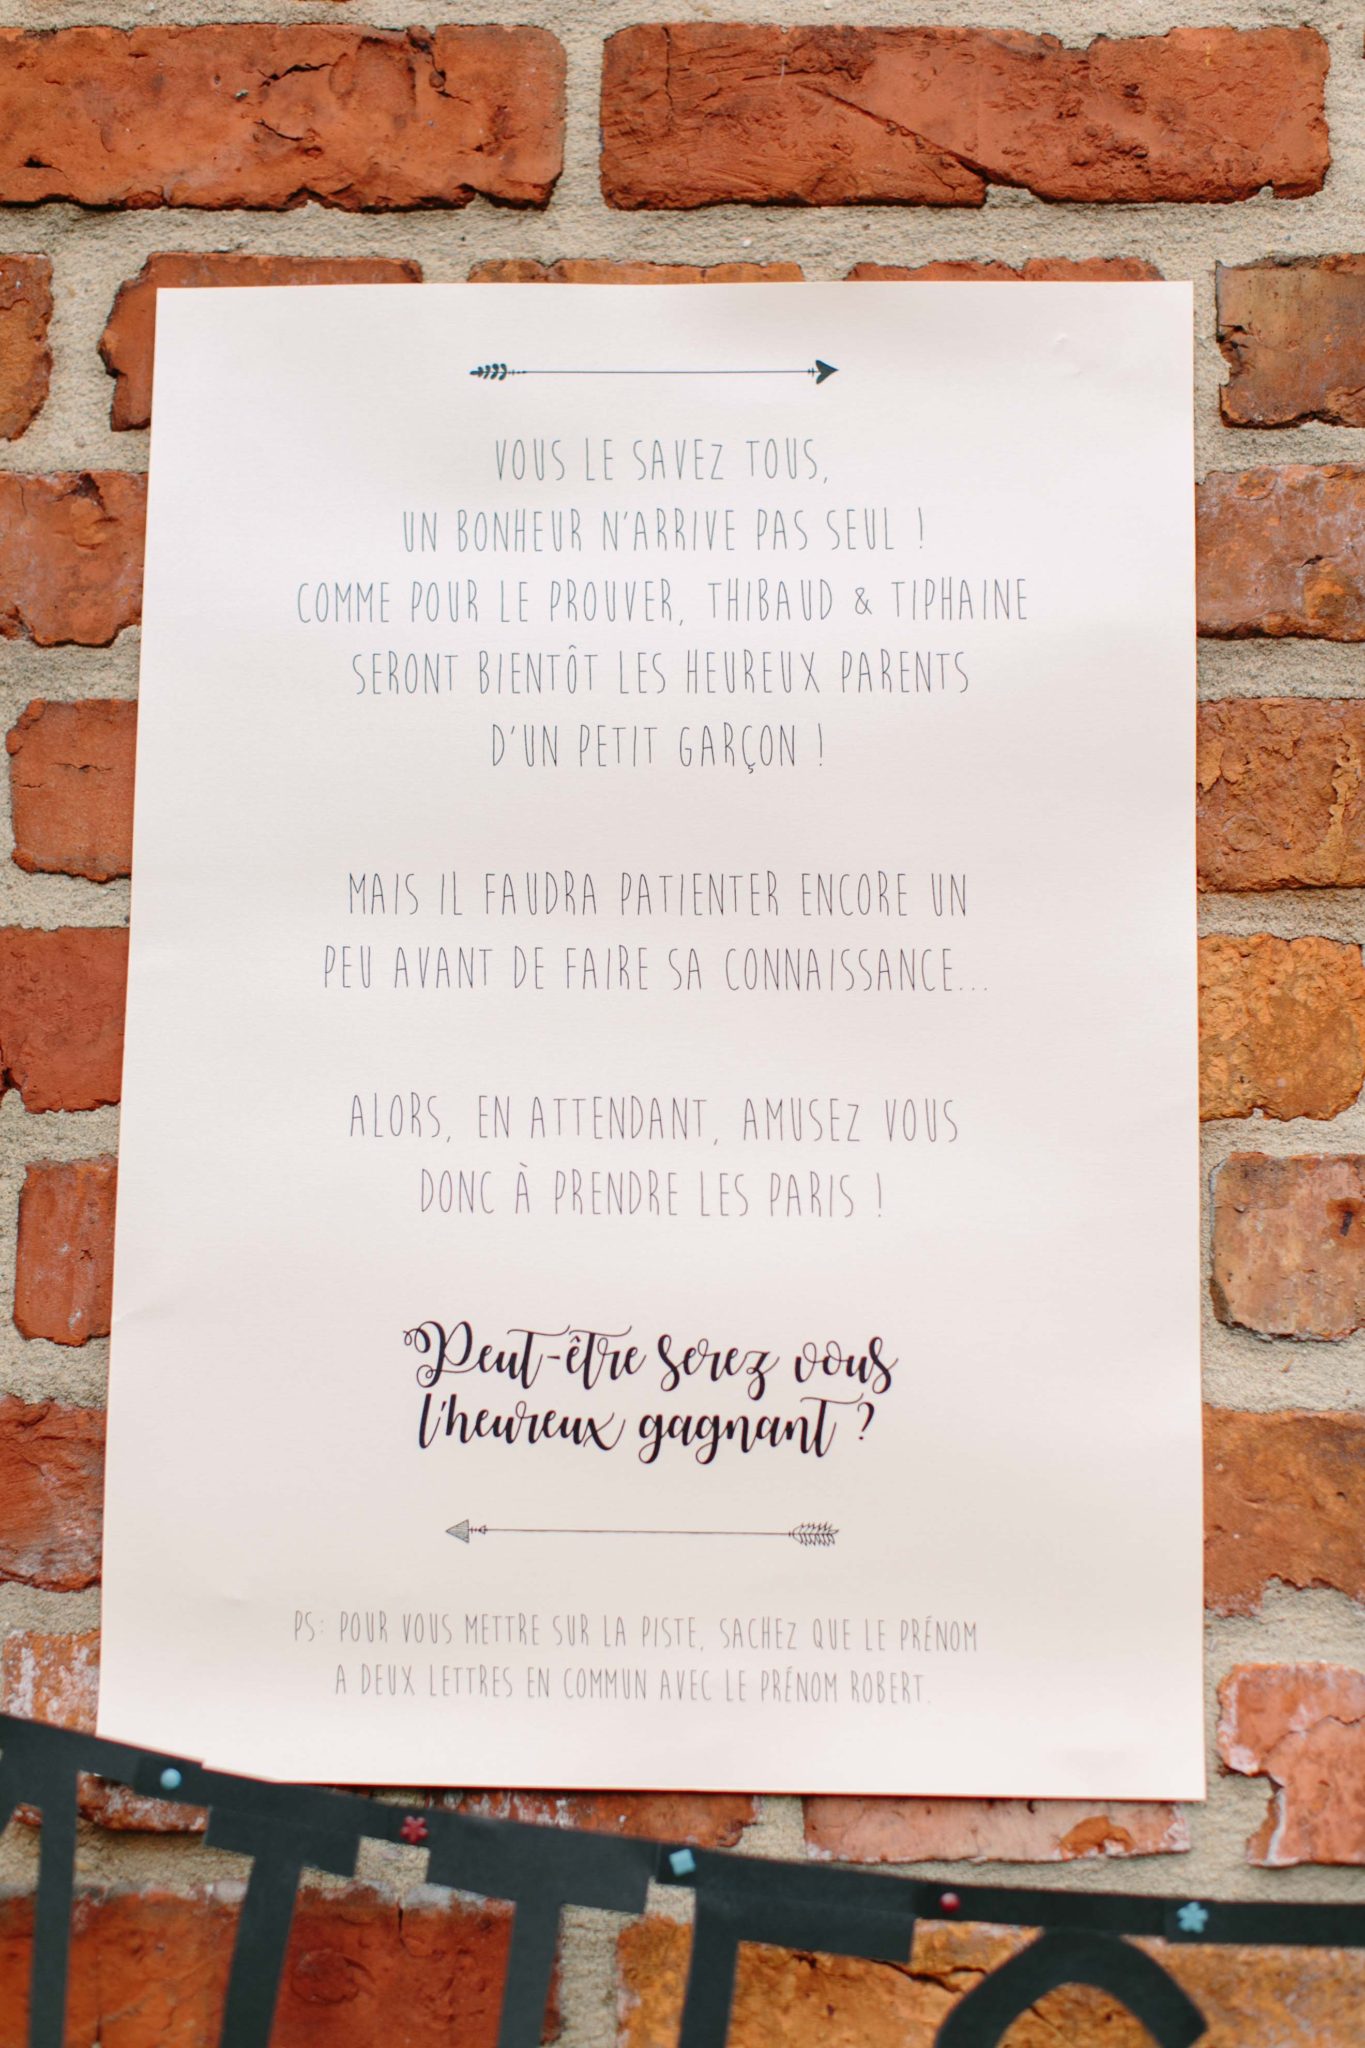 VOUS LE SAVEZ TOUS,
UN BONHEUR N'ARRIVE PAS SEUL !
COMME POUR LE PROUVER, THIBAUD & TIPHAINE
SERONT BIENTÔT LES HEUREUX PARENTS
D'UN PETIT GARÇON !
MAIS IL FAUDRA PATIENTER ENCORE UN
PEU AVANT DE FAIRE SA CONNAISSANCE...
ALORS, EN ATTENDANT, AMUSEZ VOUS
DONC À PRENDRE LES PARIS !
Peut-être serez vous
l'heureux gagnant ?
PS: POUR VOUS METTRE SUR LA PISTE, SACHEZ QUE LE PRÉNOM
A DEUX LETTRES EN COMMUN AVEC LE PRÉNOM ROBERT.